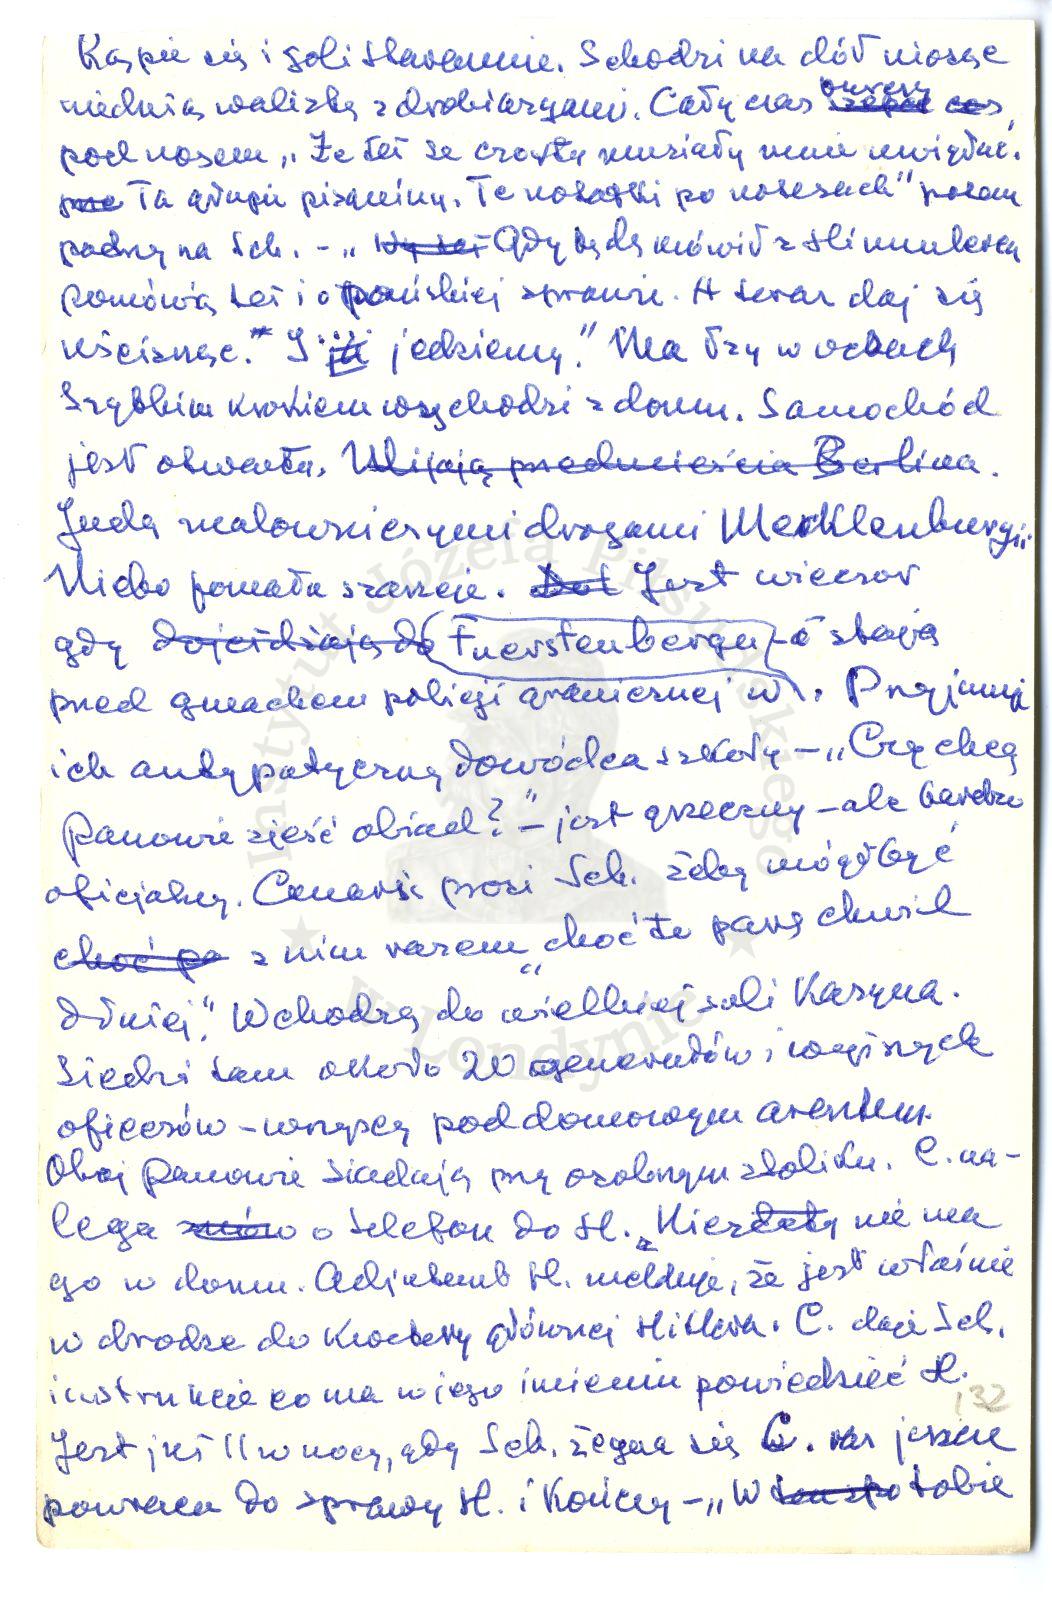 Kąpie się i goli starannie. Schodzi na dół niosąc
niedużą walizkę z drobiazgami. Cały czas mruczy szepcze coś,
pod nosem „Że też te czorty musiały mnie uwiązać.
Ta głupia pisanina. Te notatki po notesach" potem
patrzy na Sch. - „ Gdy będę mówił z Himmlerem
pomówię też i o pańskiej sprawie. A teraz daj się
uściskać." I już jedziemy." Ma łzy w oczach
Szybkim krokiem wychodzi z domu. Samochód
jest otwarty. Mijają przedmieścia Berlina.
Jadą malowniczymi drogami Mecklenburgii.
Niebo pomału szarzeje. Jest wieczór
gdy dojeżdżają do Fuerstenbergu - stają
przed gmachem policji granicznej w . Przyjmuje
ich antypatyczny dowódca szkoły - „Czy chcą
Panowie zjeść obiad?" - jest grzeczny - ale bardzo
oficjalny. Canaris prosi Sch. żeby mógł być
choć pa z nim razem „choć te parę chwil
dłużej." Wchodzą do wielkiej sali Kasyna.
Siedzi tam około 20 generałów i wyższych
oficerów - wszyscy pod domowym aresztem.
Obaj Panowie siadają przy osobnym stoliku. C. na-
lega znów o telefon do H. Niestety nie ma
go w domu. Adjutant H. melduje, że jest właśnie
w drodze do kwatery głównej Hitlera. C. daje Sch.
instrukcje co ma w jego imieniu powiedzieć H.
132
Jest już 11 w nocy, gdy Sch. żegna się C. raz jeszcze
powraca do sprawy H. i kończy - „W tobie
Instytut Józefa Piłsudskiego
w Londynie